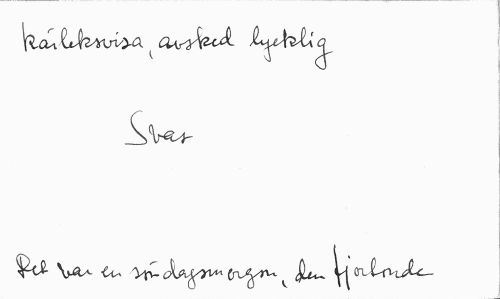 kärleksvisa, avsked lycklig
Svar
Det var en söndagsmorgon, den fjortonde